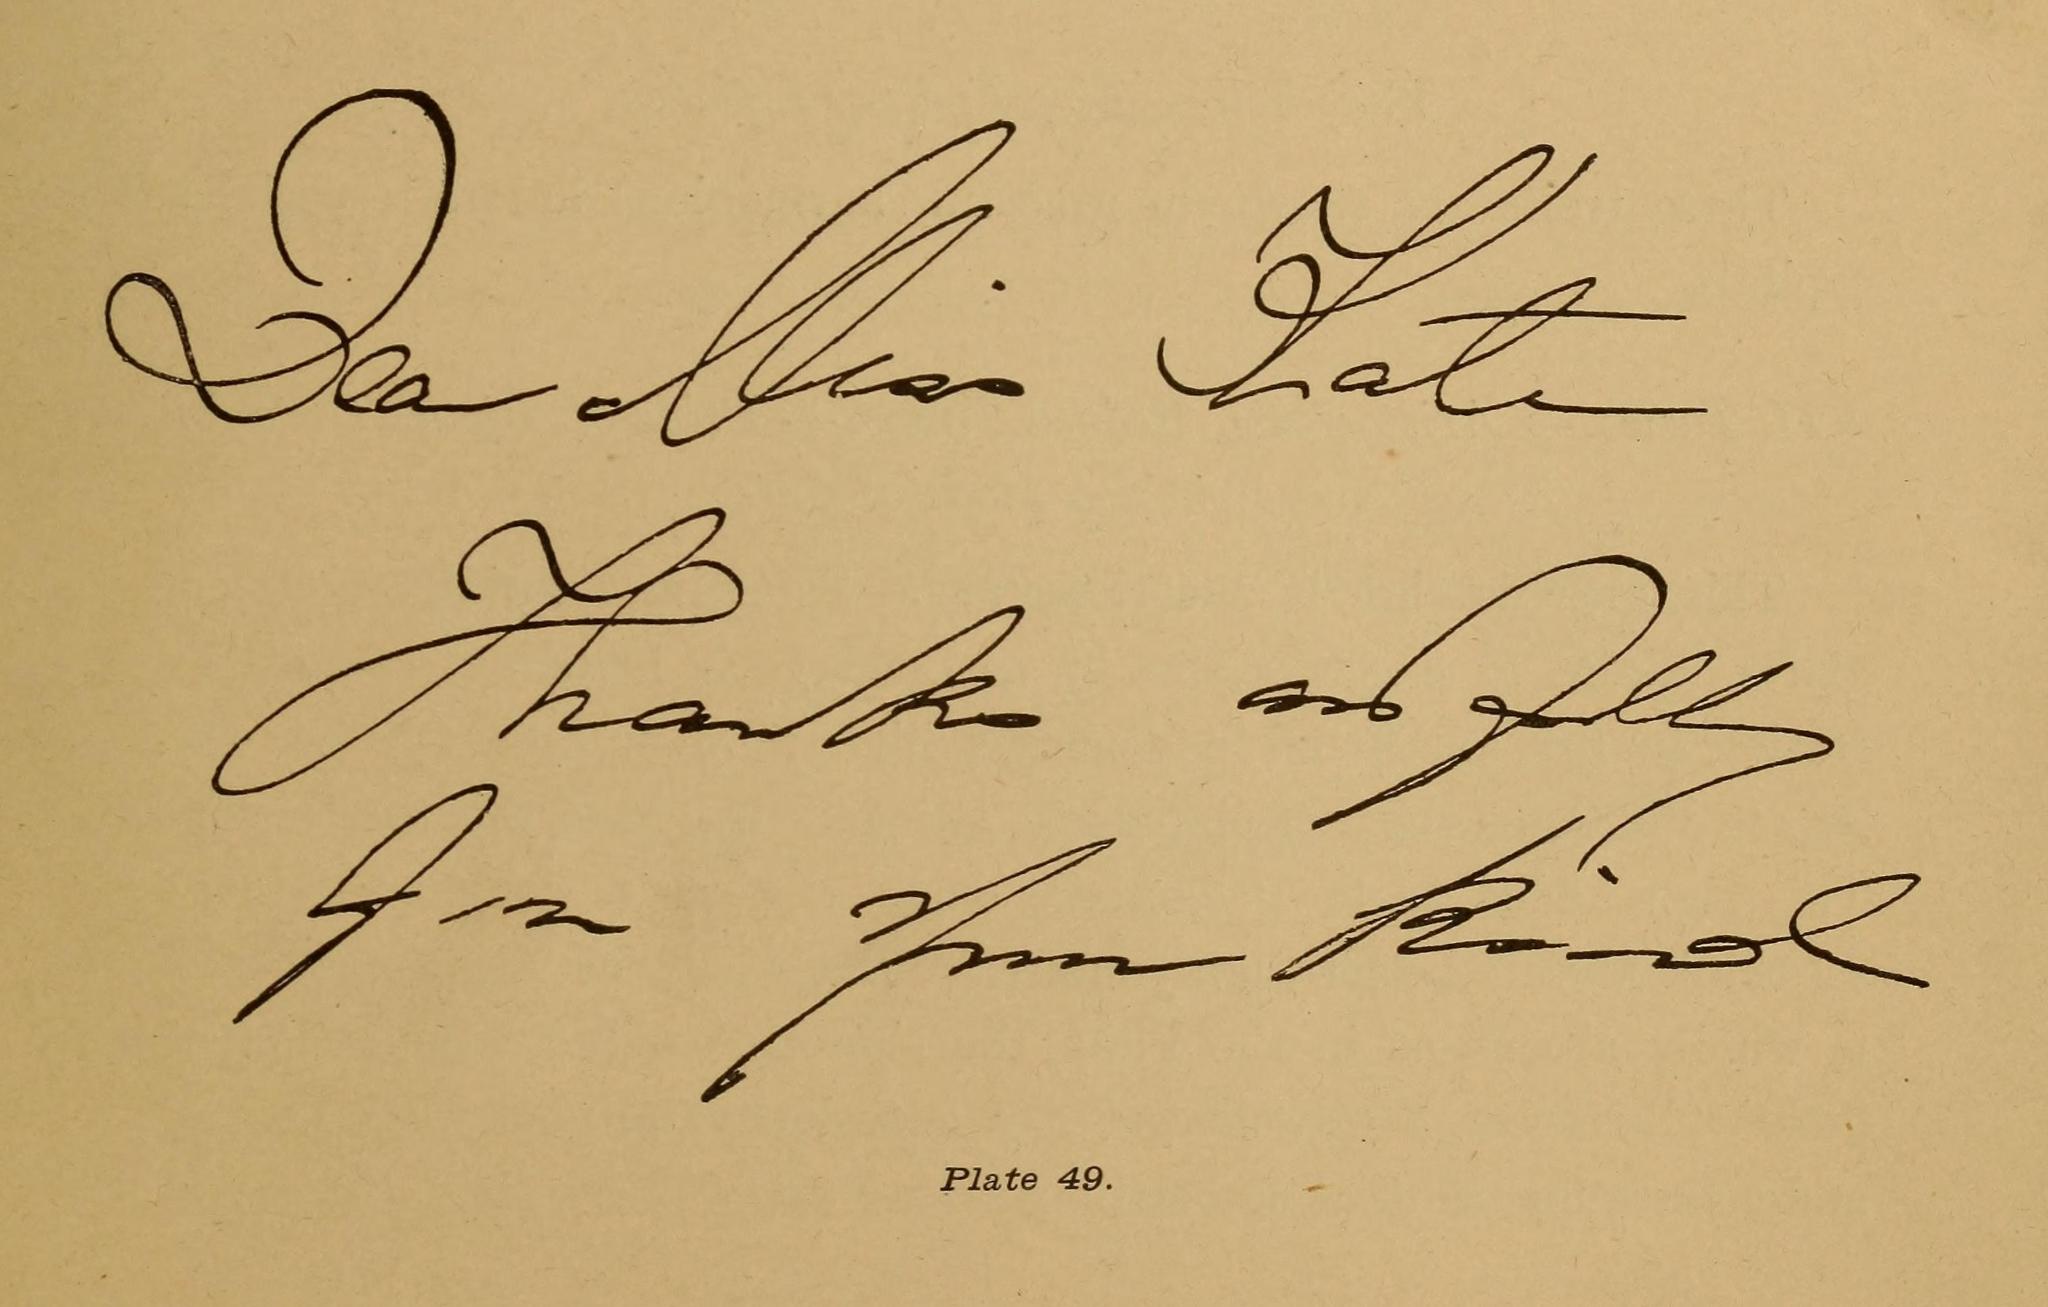 Dear Miss Kate
Thanks
for your kind
Plate 49.